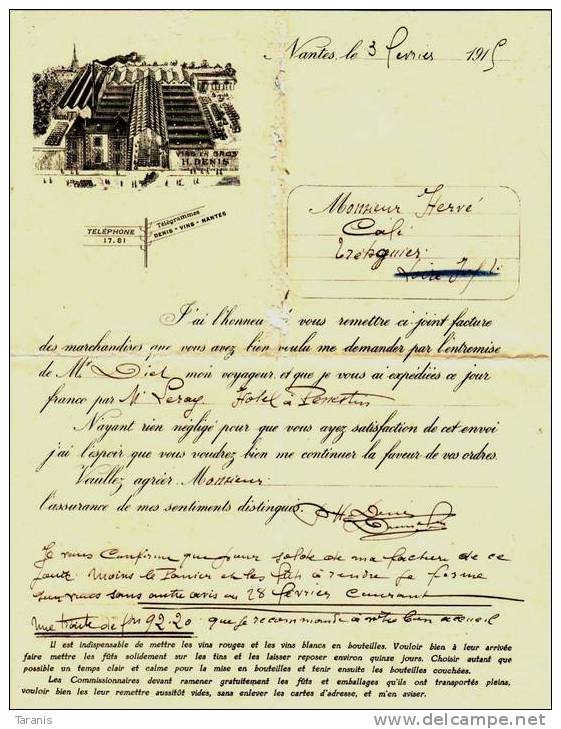 Nantes, le 3 février 1915
VINS EN GROS
H. DENIS
TÉLÉPHONE
17.81
Télégrammes
DENIS - VINS - NANTES
Monsieur Hervé
Café
Tréhiguier
Loire Inf
J'ai l'honneu vous remettre ci-joint facture
des marchandises que vous avez bien voulu me demander par l'entremise
de Mr Diel mon voyageur et que je vous ai expédiées ce jour
franco par Mr Leray Hotel à Penestin
N'ayant rien négligé pour que vous ayez satisfaction de cet envoi
j'ai l'espoir que vous voudrez bien me continuer la faveur de vos ordres.
Veuillez agréer Monsieur
l'assurance de mes sentiments distingués. H. Denis
Je vous confirme que pour solde de ma facture de ce
jour moins le panier et les fûts à rendre je forme
sur vous sans autre avis au 28 février courant
une traite de frs 92.20 que je recommande à votre bon accueil
Il est indispensable de mettre les vins rouges et les vins blancs en bouteilles. Vouloir bien à leur arrivée
faire mettre les fûts solidement sur les tins et les laisser reposer environ quinze jours. Choisir autant que
possible un temps clair et calme pour la mise en bouteilles et tenir ensuite les bouteilles couchées.
Les Commissionnaires devant ramener gratuitement les fûts et emballages qu'ils ont transportés pleins,
vouloir bien les leur remettre aussitôt vides, sans enlever les cartes d'adresse, et m'en aviser.
Taranis
www.delcampe.net